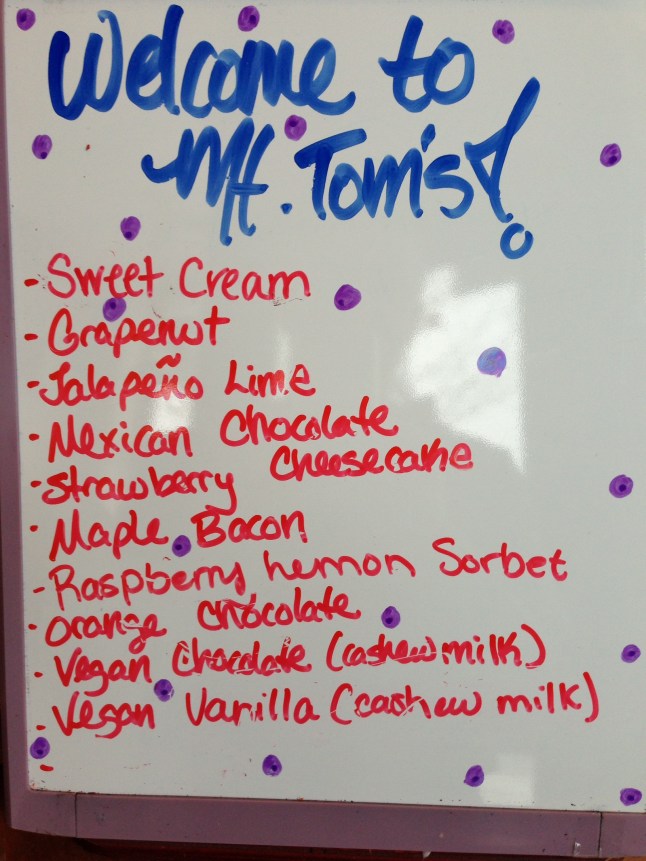 Welcome to
Mt. Tom's!
- Sweet Cream
- Grapenut
- Jalapeño Lime
- Mexican Chocolate
- Strawberry Cheesecake
- Maple Bacon
- Raspberry Lemon Sorbet
- Orange Chocolate
- Vegan Chocolate (cashew milk)
- Vegan Vanilla (cashew milk)
-